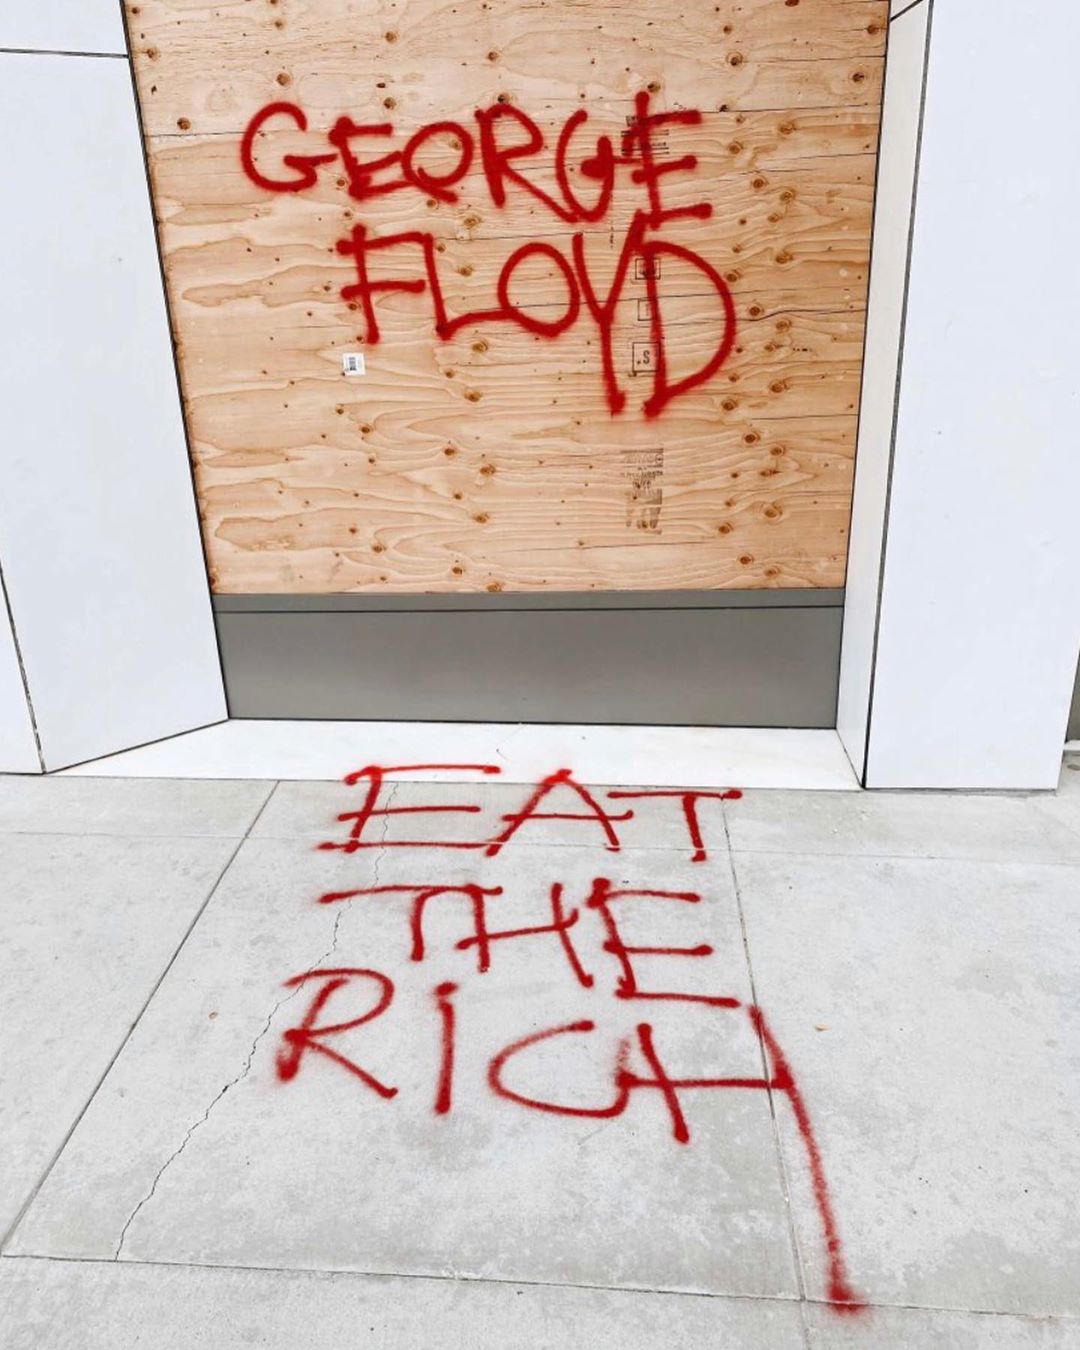 GEORGE
FLOYD
EAT
THE
RICH